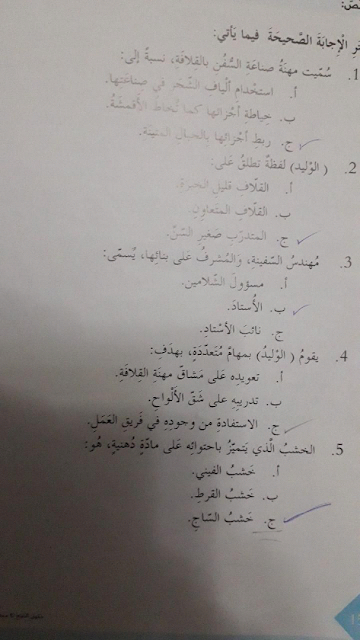 نصّ:
ـر الْإِجابَةَ الصَّحيحَةَ فيما يَأتي:
1. سُمّيت مهنَةُ صناعَةِ السُّفُن بالقلافَةِ، نسبةً إلى:
أ. استخدامِ ألْيافِ الشّجر في صِناعَتها.
ب. خياطةِ أجْزائها كما تُخاطُ الأقمشَةُ.
ج. ربطِ أجْزائها بالحبالِ المتينَةِ.
2. ( الوْليد) لفظَةٌ تطلقُ عَلى:
أ. القلّاف قليلِ الخبرَةِ.
ب. القلّافِ المتَعاونِ.
ج. المتدرّبِ صَغيرِ السّنّ.
3. مُهندسُ السّفينةِ، وَالمُشرفُ عَلى بنائِها، يُسمّى:
أ. مسؤولَ الشّلامين.
ب. الْأُستادَ.
ج. نائبَ الأسْتادِ.
4. يقومُ ( الوْليدُ) بمهامَّ مُتَعدّدَةٍ، بهدَفِ:
أ. تعويدِه عَلى مَشاقّ مهنَةِ القلافَةِ.
ب. تدريبِه على شَقّ الْأَلْواحِ.
ج. الاستفادَةِ من وجودِهِ في فَريق العَمَلِ.
5. الخشبُ الّذي يَتميّزُ باحتوائِه عَلى مادّةٍ دُهنيةٍ، هُوَ:
أ. خَشبُ الفيني.
ب. خَشبُ القرطِ.
ج. خَشبُ السّاجِ.